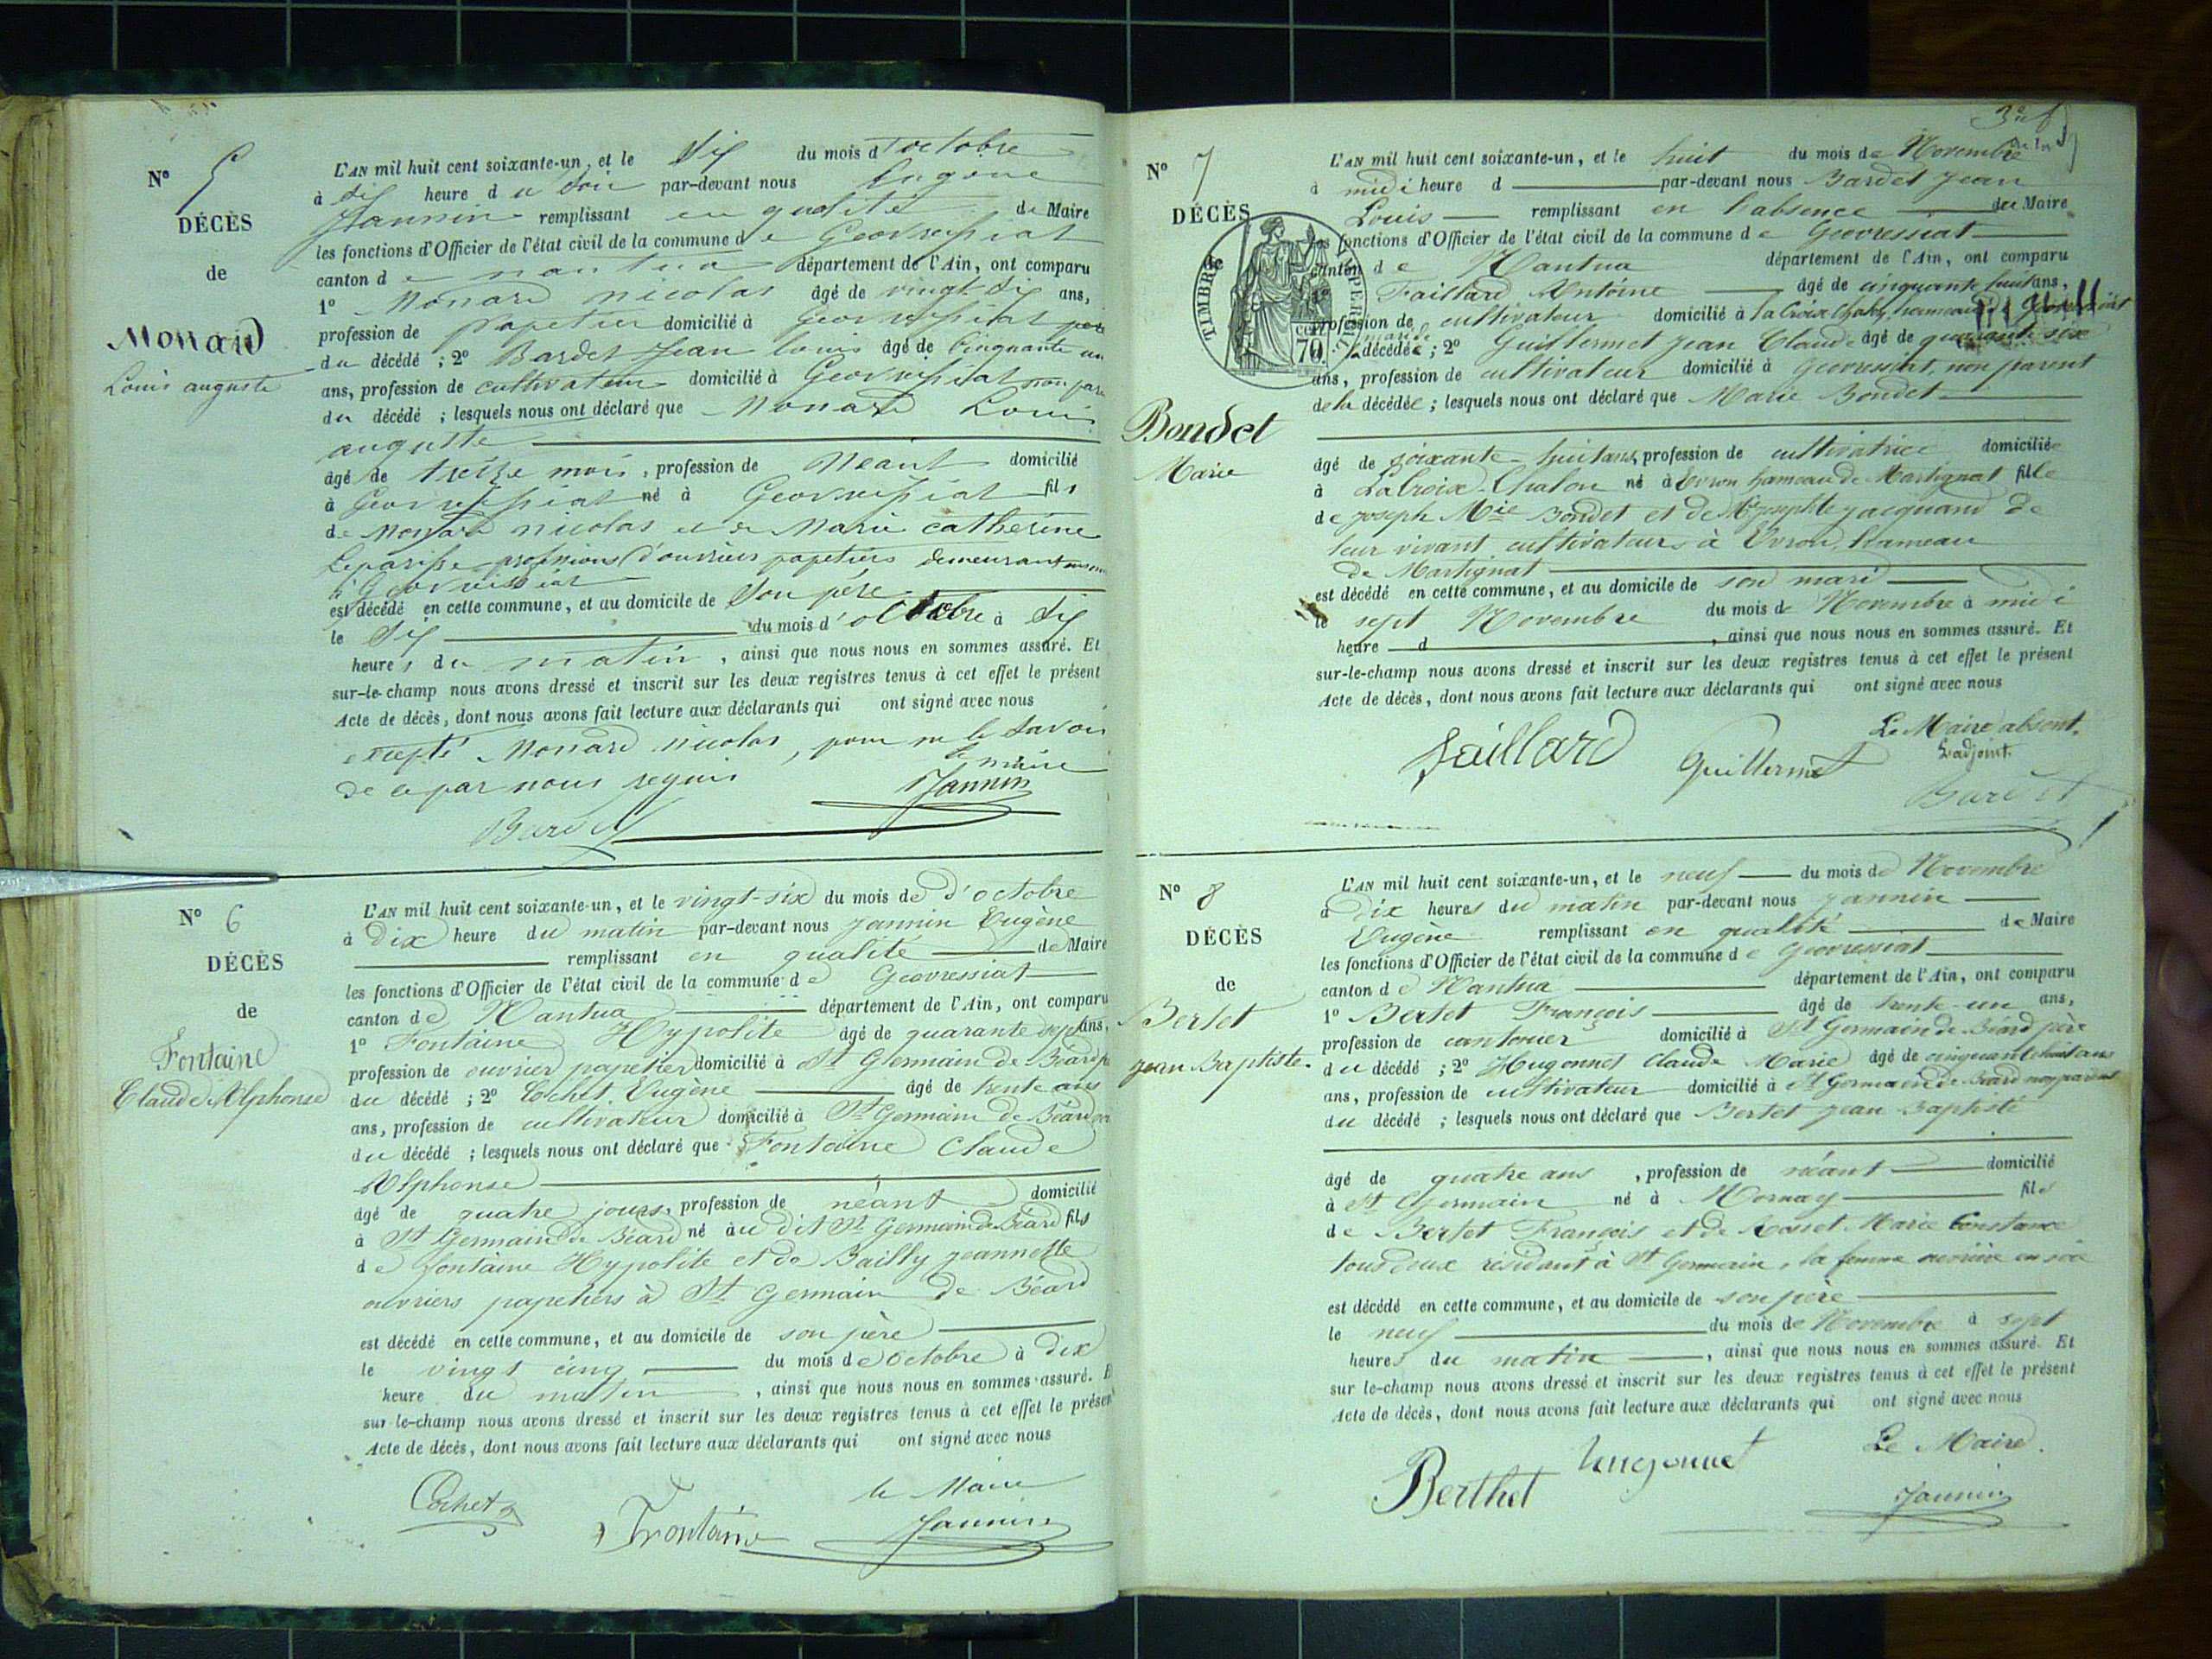 N° 5
DÉCÈS
de
Monard
Louis auguste
L'AN mil huit cent soixante-un, et le Six du mois d'octobre
à Six heure du Soir par-devant nous Eugène
Jannin remplissant en qualité de Maire
les fonctions d'Officier de l'état civil de la commune de Geovressiat
canton de nantua département de l'Ain, ont comparu
1° Monard nicolas âgé de vingt Six ans,
profession de papetier domicilié à Geovressiat père
du décédé ; 2° Bardet Jean louis âgé de Cinquante un
ans, profession de cultivateur domicilié à Geovressiat non
du décédé ; lesquels nous ont déclaré que Monard Louis
auguste
âgé de treize mois, profession de Néant domicilié
à Geovressiat né à Geovressiat fils
de Monard nicolas et de Marie catherine
professions d'ouvriers papetiers demeurant
à Geovressiat
est décédé en cette commune, et au domicile de Son père
le Six du mois d'octobre à Six
heures du matin, ainsi que nous nous en sommes assuré. Et
sur-le-champ nous avons dressé et inscrit sur les deux registres tenus à cet effet le présent
Acte de décès, dont nous avons fait lecture aux déclarants qui ont signé avec nous
excepté Monard nicolas, pour ne le Savoir
de ce par nous requis le maire
Jannin
Bardet
N° 6
DÉCÈS
de
Fontaine
Claude Alphonse
L'AN mil huit cent soixante-un, et le vingt-six du mois de d'octobre
à Dix heure du matin par-devant nous Jannin Eugène
remplissant en qualité de Maire
les fonctions d'Officier de l'état civil de la commune de Geovressiat
canton de Nantua département de l'Ain, ont comparu
1° Fontaine Hypolite âgé de quarante sept ans,
profession de ouvrier papetier domicilié à St Germain de Béard
du décédé ; 2° Cochet Eugène âgé de trente ans
ans, profession de cultivateur domicilié à St Germain de Béard
du décédé ; lesquels nous ont déclaré que Fontaine Claude
Alphonse
âgé de quatre jours, profession de néant domicilié
à St Germain de Béard né au dit St Germain de Béard fils
de fontaine Hypolite et de Bailly jeannette
ouvriers papetiers à St Germain de Béard
est décédé en cette commune, et au domicile de son père
le vingt cinq du mois de octobre à Dix
heure du matin, ainsi que nous nous en sommes assuré. Et
sur-le-champ nous avons dressé et inscrit sur les deux registres tenus à cet effet le présent
Acte de décès, dont nous avons fait lecture aux déclarants qui ont signé avec nous
Cochet
Fontaine
le Maire
Jannin
N° 7
DÉCÈS
de
TIMBRE IMPÉRIAL
70
Bondet
Marie
L'AN mil huit cent soixante-un, et le huit du mois de Novembre
à midi heure d par-devant nous Bardet Jean
Louis remplissant en l'absence du Maire
les fonctions d'Officier de l'état civil de la commune de Geovressiat
canton de Nantua département de l'Ain, ont comparu
1° Faillard Antoine âgé de cinquante huit ans,
profession de cultivateur domicilié à la Croix Chalon, hameau de Geovressiat
mari de la décédée ; 2° Guillermet Jean Claude âgé de quarante six
ans, profession de cultivateur domicilié à Geovressiat, non parent
de la décédée ; lesquels nous ont déclaré que Marie Bondet
âgé de soixante-huit ans, profession de cultivatrice domiciliée
à La Croix-Chalon né à Evron hameau de Martignat fille
de joseph Mie Bondet et de Josephte jacquand de
leur vivant cultivateurs à Evron, hameau
de Martignat
est décédé en cette commune, et au domicile de son mari
le sept Novembre du mois de Novembre à midi
heure d, ainsi que nous nous en sommes assuré. Et
sur-le-champ nous avons dressé et inscrit sur les deux registres tenus à cet effet le présent
Acte de décès, dont nous avons fait lecture aux déclarants qui ont signé avec nous
Le Maire absent.
L'adjoint.
faillard
Guillermet
Bardet
N° 8
DÉCÈS
de
Bertet
jean Baptiste
L'AN mil huit cent soixante-un, et le neuf du mois de Novembre
à Dix heures du matin par-devant nous Jannin
Eugène remplissant en qualité de Maire
les fonctions d'Officier de l'état civil de la commune de Geovressiat
canton de Nantua département de l'Ain, ont comparu
1° Bertet François âgé de trente-un ans,
profession de domicilié à St Germain de Béard père
du décédé ; 2° Hugonnet Claude Marie âgé de cinquante huit ans
ans, profession de cultivateur domicilié à St Germain de Béard non parent
du décédé ; lesquels nous ont déclaré que Bertet jean Baptiste
âgé de quatre ans, profession de néant domicilié
à St Germain né à Mornay fils
de Bertet François et de Marie Constance
tous deux résidant à St Germain, la femme ouvrière en soie
est décédé en cette commune, et au domicile de son père
le neuf du mois de Novembre à sept
heures du matin, ainsi que nous nous en sommes assuré. Et
sur-le-champ nous avons dressé et inscrit sur les deux registres tenus à cet effet le présent
Acte de décès, dont nous avons fait lecture aux déclarants qui ont signé avec nous
Le Maire.
Berthet
hugonnet
Jannin